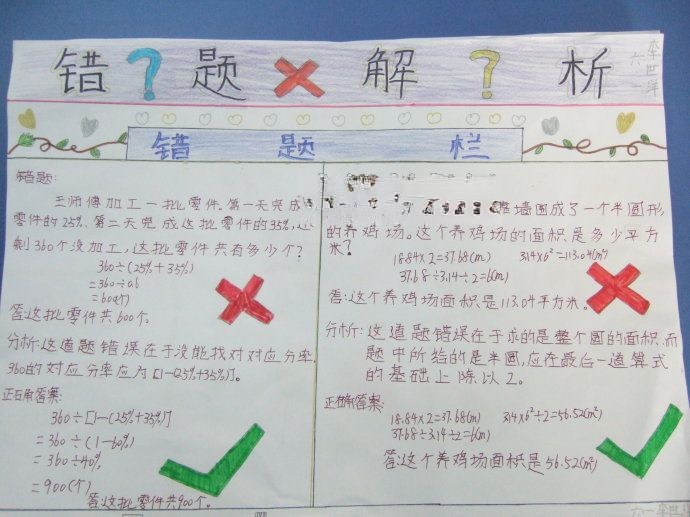 错?题×解?析
六一
李世洋
错题栏
错题:
王师傅加工一批零件.第一天完成
零件的25%.第二天完成这批零件的35%,还
剩360个没加工,这批零件共有多少个?
360÷(25%+35%)
=360÷0.6
=600(个)
答:这批零件共600个。
分析:这道题错误在于没能找对对应分率.
360的对应分率应为[1-(25%+35%)]。
正确答案:
360÷[1-(25%+35%)]
=360÷(1-60%)
=360÷40%
=900(个)
答:这批零件共900个。
靠墙围成了一个半圆形
的养鸡场。这个养鸡场的面积是多少平方
米?
18.84×2=37.68(m) 3.14×6²=113.04(m²)
37.68÷3.14÷2=6(m)
答:这个养鸡场面积是113.04平方米。
分析:这道题错误在于求的是整个圆的面积.而
题中所给的是半圆,应在最后一道算式
的基础上除以2。
正确答案:
18.84×2=37.68(m) 3.14×6²÷2=56.52(m²)
37.68÷3.14÷2=6(m)
答:这个养鸡场面积是56.52(m²)
六一李世